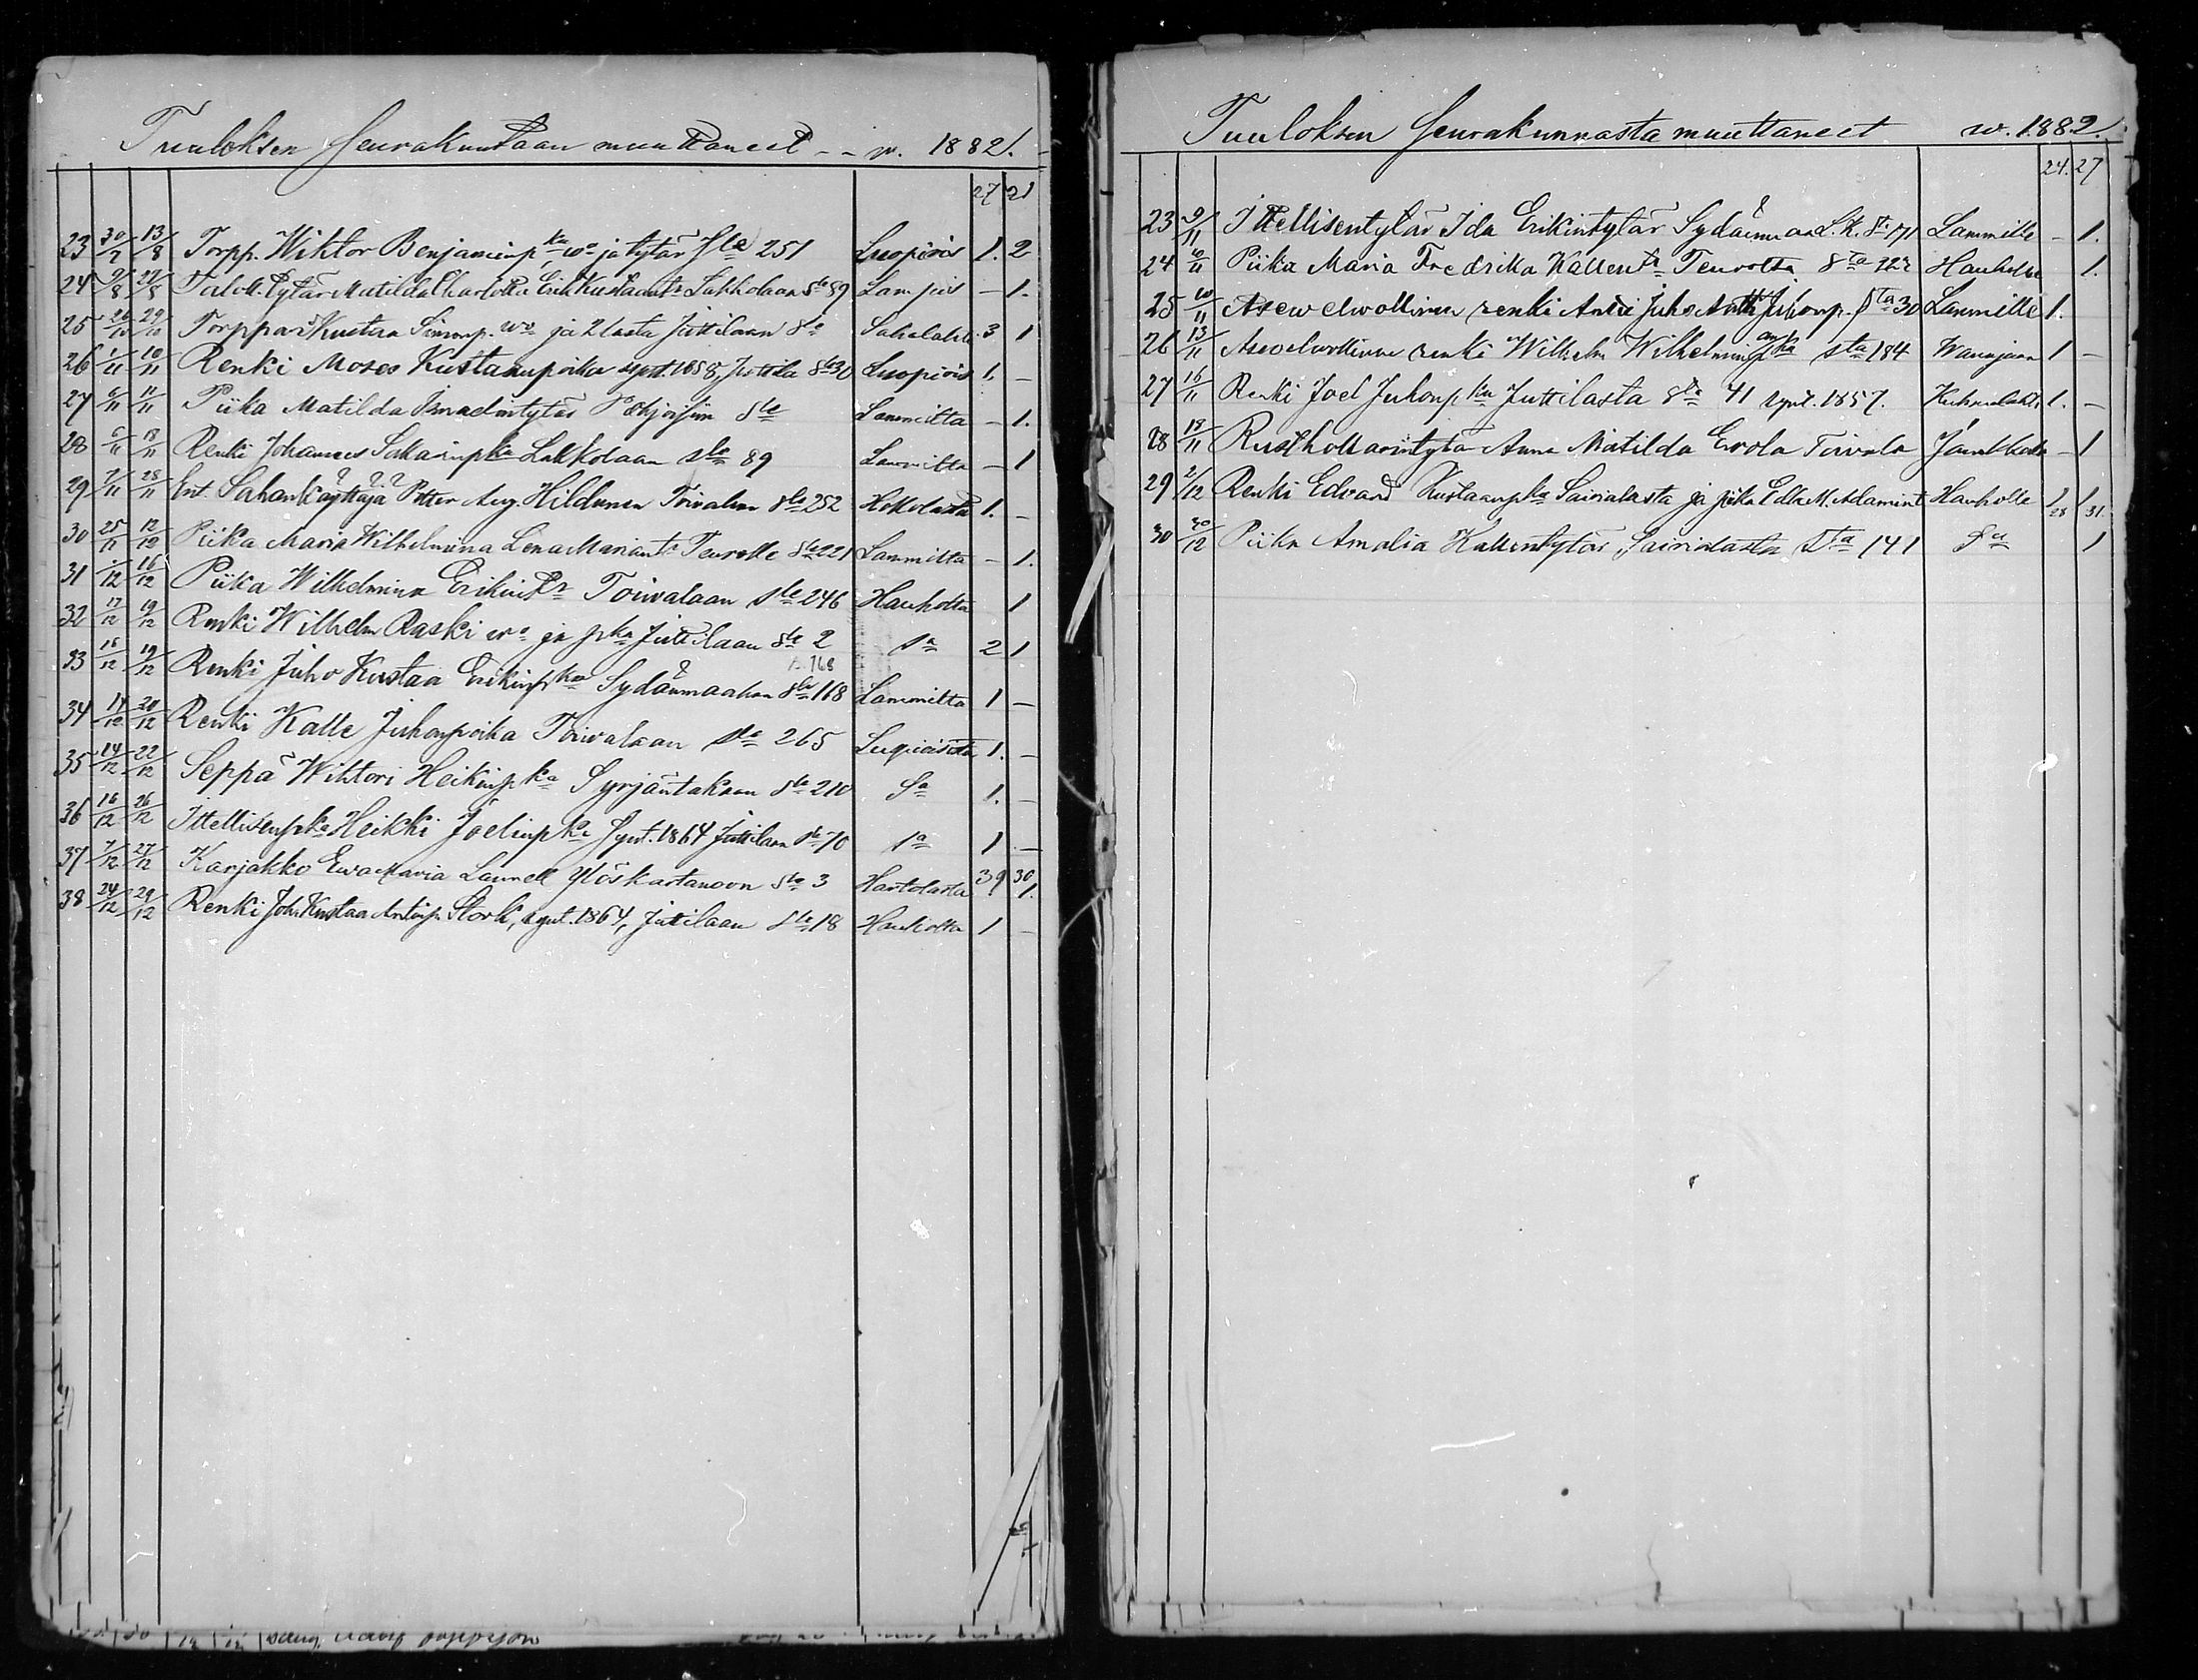 Tuuloksen Seurakuntaan muuttaneet - - w. 1882.
27 21
23 30/7 13/8 Torpp. Wiktor Benjaminp ka wo ja tytär Sle 251 Luopiois 1. 2
24 9/8 27/8 Talott. tytär Matilda Charlotta Erik Kustaantr Lakkolaan Sle 89 Lampis – 1.
25 26/10 29/10 Torppari Kustaa Simonp. wo ja 2 lasta Juttilaan Sle Sahalahti 3 1
26 1/11 10/11 Renki Moses Kustaanpoika synt. 1858, Juttila Sle 30 Luopiois 1. –
27 6/11 11/11 Piika Matilda tytär Pohjoisiin Sle Lammilta – 1.
28 6/11 18/11 Renki Johannes Sakarinpka Lakkolaan Sle 89 Lammilta – 1
29 7/11 28/11 Ent. Sahankäyttäjä Petter Aug. Hildunen Toivalaan Sle 252 1. –
30 25/11 12/12 Piika Maria Wilhelmina Lena Mariantr Teurolle Sle 221 Lammilta – 1.
31 1/12 16/12 Piika Wilhelmina Erikintr Toivalaan Sle 246 Hauholta 1
32 17/12 19/12 Renki Wilhelm Raski wo ja pka Juttilaan Sle 2 Sa 2 1
168
33 18/12 19/12 Renki Juho Kustaa Erikinpka Sydänmaahan Sle 168 Lammilta 1 –
34 14/12 20/12 Renki Kalle Juhonpoika Toivalaan Sle 265 Luopioisista 1. –
35 14/12 22/12 Seppä Wihtori Heikinpka Syrjäntakaan Sle 210 Sa 1. –
36 16/12 26/12 Ittellisenpka Heikki Joelinpka Synt. 1864 Juttilaan Sle 70 Sa 1 –
37 7/12 27/12 Karjakko Ewa Maria Launell Ylöskartanoon Sle 3 Hartolasta 39 30 1.
38 24/12 29/12 Renki Joh. Kustaa Antinp. Stork, synt. 1864, Juttilaan Sle 18 Hauholta 1 –
Tuuloksen Seurakunnasta muuttaneet w. 1882.
24. 27
23 9/11 Ittellisentytär Ida Erikintytär Sydänmaa L.k. St 171 Lammille – 1.
24 10/11 Piika Maria Fredrika Kallentr Teurolta Sta Hauholle 1.
25 10/11 Asewelwollinen renki Antti Juho Juhonp. Sta 30 Lammille 1.
26 13/11 Asewelwollinen renki Wilhelm Wilhelminpka Sta 184 Wanajaan 1 –
27 16/11 Renki Joel Juhonpka Juttilasta Sta 41 synt. 1857. Kuhmalahti 1. –
28 18/11 Rusthollarintytär Anna Matilda Erola Toivola – 1
29 2/12 Renki Edvard Kustaanpka Sairialasta ja piika Edla M. Adamint. Hauholle 1 1
28 31
30 30/12 Piika Amalia Kallentytär, Sairialasta Sta 141 Sa 1